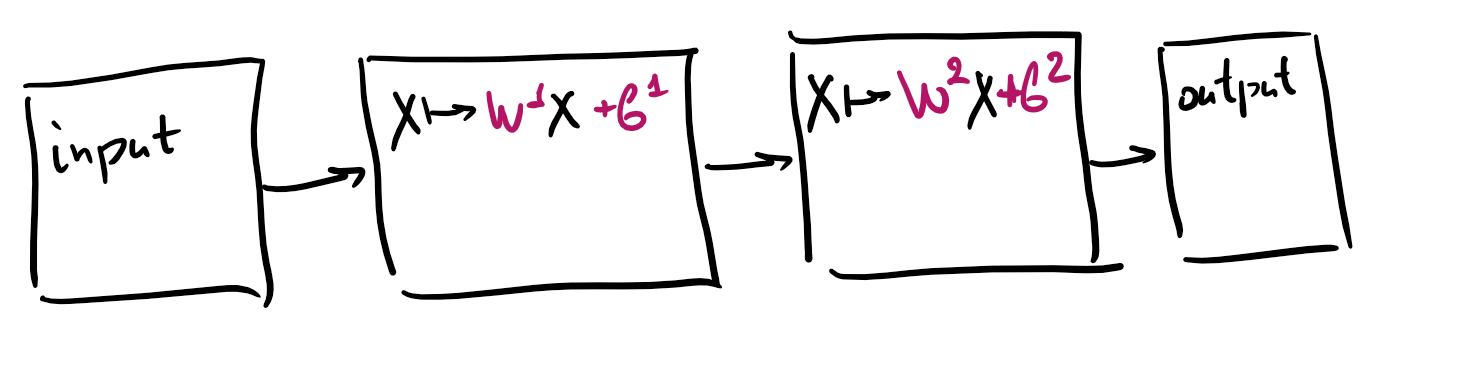 input
X ↦ W¹X + b¹
X ↦ W²X + b²
output